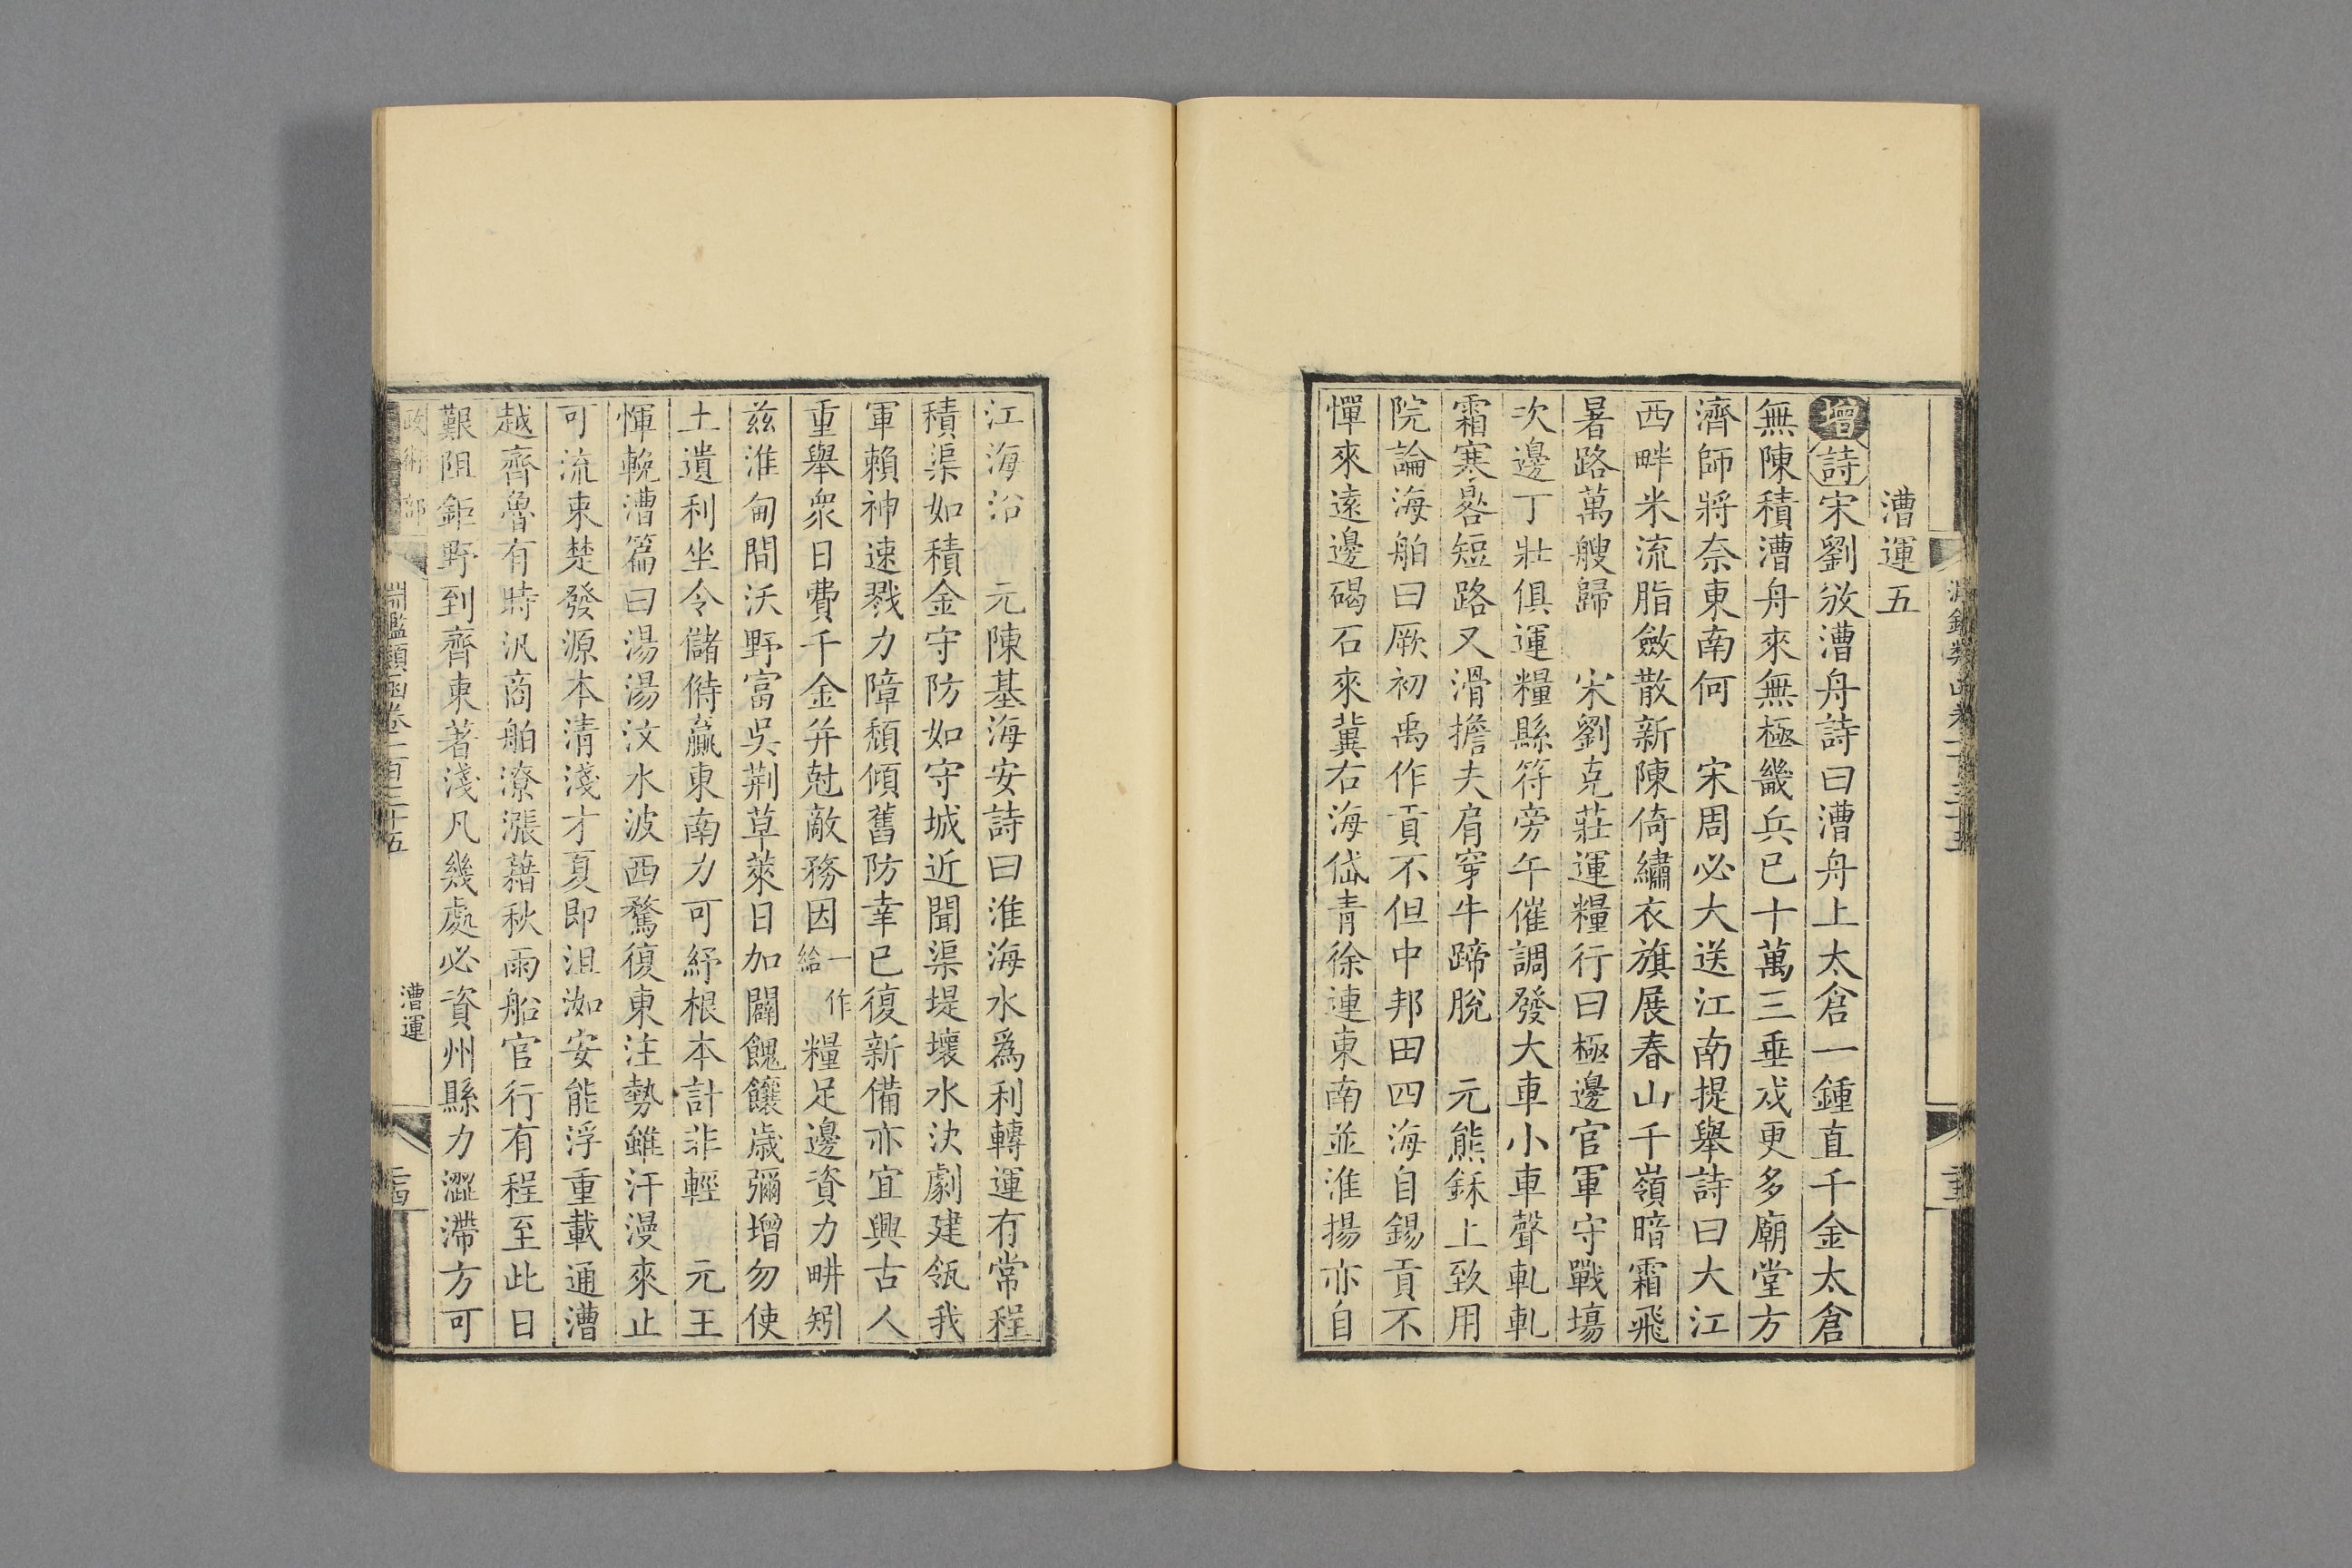 漕運五
增詩宋劉攽漕舟詩曰漕舟上太倉一鍾直千金太倉
無陳積漕舟來無極畿兵已十萬三垂戍更多廟堂方
濟師將奈東南何　宋周必大送江南提舉詩曰大江
西畔米流脂斂散新陳倚繡衣旗展春山千嶺暗霜飛
暑路萬艘歸　宋劉克莊運糧行曰極邊官軍守戰場
次邊丁壯俱運糧縣符旁午催調發大車小車聲軋軋
霜寒晷短路又滑擔夫肩穿牛蹄脫　元熊鉌上致用
院論海舶曰厥初禹作貢不但中邦田四海自錫貢不
憚來遠邊碣石來冀右海岱青徐連東南並淮揚亦自
江海沿　元陳基海安詩曰淮海水爲利轉運有常程
積渠如積金守防如守城近聞渠堤壞水決劇建瓴我
軍賴神速戮力障頹傾舊防幸已復新備亦宜興古人
重舉衆日費千金并尅敵務因一作給糧足邊資力畊矧
茲淮甸間沃野富吳荆草萊日加闢餽饟歲彌增勿使
土遺利坐令儲偫贏東南力可紓根本計非輕　元王
惲輓漕篇曰湯湯汶水波西騖復東注勢雖汗漫來止
可流束楚發源本清淺才夏即沮洳安能浮重載通漕
越齊魯有時汎商舶潦漲藉秋雨船官行有程至此日
艱阻鉅野到齊東著淺凡幾處必資州縣力澀滯方可
政術部
淵鑑類函卷一百三十五
漕運